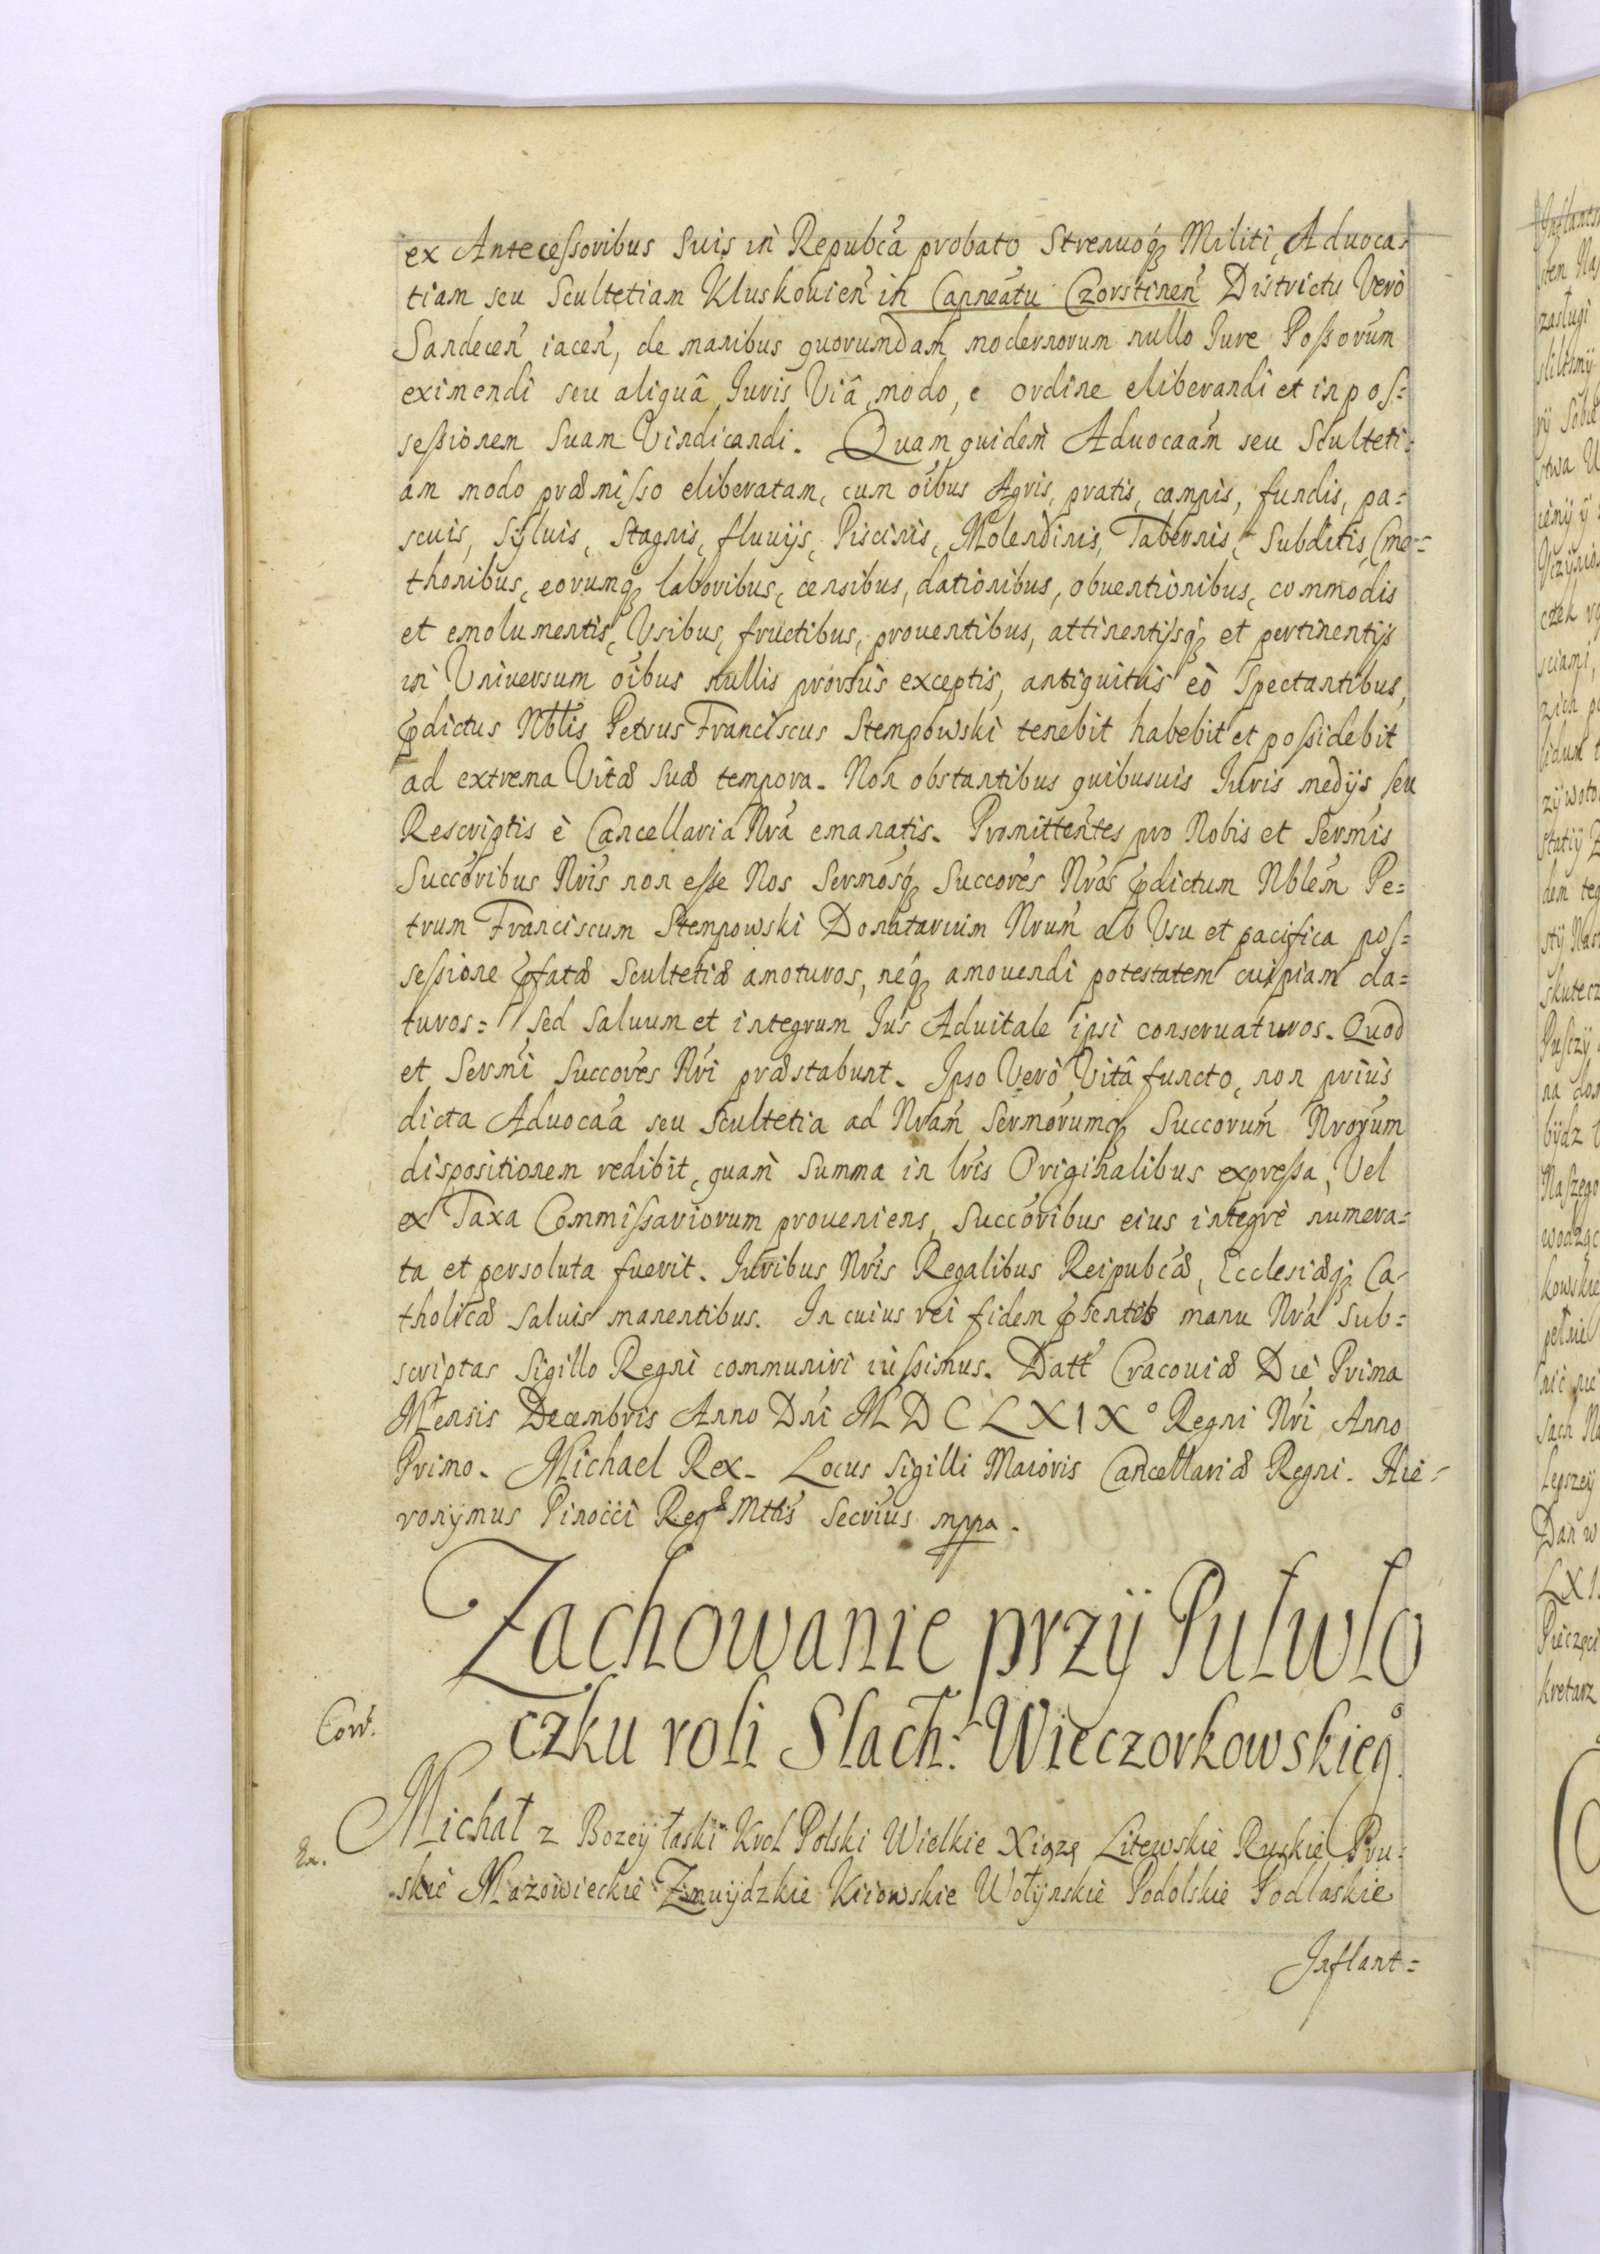 ex Antecessoribus Suis in Repubca probato Strenuoq Militi, Aduoca-
tiam seu Scultetiam Kluskouien in Capneatu Czorstinen Districtu Vero
Sandecen iacen, de manibus quorumdam modernorum nullo Iure Possorum
eximendi seu aliquâ Iuris Viâ, modo, e ordine eliberandi et in pos=
sessionem Suam Vindicandi. Quam quidem Aduocaam seu Sculteti=
am modo præmisso eliberatam, cum oibus Agris, pratis, campis, fundis, pa=
scuis, Syluis, Stagnis, fluuijs, Piscinis, Molendinis, Tabernis, Subditis, Cme=
thonibus, eorumq laboribus, censibus, dationibus, obuentionibus, commodis
et emolumentis, Vsibus, fructibus, prouentibus, attinentijsq et pertinentijs
in Vniuersum oibus nullis prorsus exceptis, antiquitus eò Spectantibus,
pdictus Nblis Petrus Franciscus Stempowski tenebit habebit et possidebit
ad extrema Vitæ Suæ tempora. Non obstantibus quibusuis Iuris medijs seu
Rescriptis è Cancellaria Nra emanatis. Promittentes pro Nobis et Sermis
Succoribus Nris non esse Nos Sermosq Succores Nros pdictum Nblem Pe=
trum Franciscum Stempowski Donatarium Nrum ab Vsu et pacifica pos=
sessione pfatæ Scultetiæ amoturos, neq amouendi potestatem cuipiam da=
turos= Sed Saluum et integrum Ius Aduitale ipsi conseruaturos. Quod
et Sermi Succores Nri præstabunt. Ipso Verò Vitâ functo, non priùs
dicta Aduocaa seu Scultetia ad Nram Sermorumq Succorum Nrorum
dispositionem redibit, quam Summa in lris Originalibus expressa, Vel
ex Taxa Commissariorum proueniens, Succoribus eius integrè numera=
ta et persoluta fuerit. Iuribus Nris Regalibus Reipubcæ, Ecclesiæq Ca-
tholicæ saluis manentibus. In cuius rei fidem psentes manu Nra Sub=
scriptas Sigillo Regni communiri iussimus. Datt Cracouiæ Die Prima
Mensis Decembris Anno Dni MDCLXIX° Regni Nri Anno
Primo. Michael Rex. Locus Sigilli Maioris Cancellariæ Regni. Hie=
ronymus Pinocci Reg Mttis Secrius mppa.
Zachowanie przÿ Pułwło
czku roli Slach: Wieczorkowskieg°
Conf.
Michał z Bozeÿ łaski Krol Polski Wielkie Xiązę Litewskie Ruskie Pru=
skie Mazowieckie Zmuÿdzkie Kiiowskie Wołÿnskie Podolskie Podlaskie
Inflant=